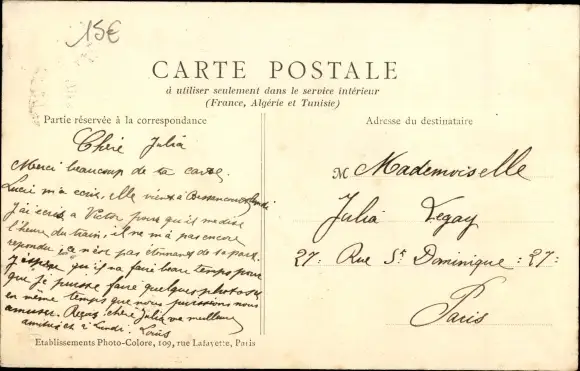 15€
CARTE POSTALE
à utiliser seulement dans le service intérieur
(France, Algérie et Tunisie)
Partie réservée à la correspondance
Chère Julia
Merci beaucoup de ta carte.
Lucie m'a écris, elle vient à Lundi
J'ai écris a Victor pour qu'il me dise
l'heure du train, il ne m'a pas encore
repondu, ce n'est pas étonnant de sa part.
J'espère qu'il va faire beau temps pour
que je puisse faire quelques photos
en même temps que nous puissions nous
amuser. Reçois chère Julia me meilleurs
amitiés et à Lundi. Louis
Etablissements Photo-Colore, 109, rue Lafayette, Paris
Adresse du destinataire
M Mademoiselle
Julia Legay
27: Rue St Dominique :27:
Paris